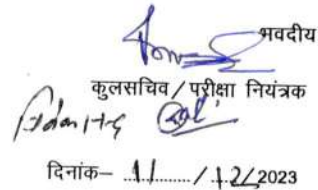 भवदीय
कुलसचिव / परीक्षा नियंत्रक
दिनांक– 11 / 12/2023